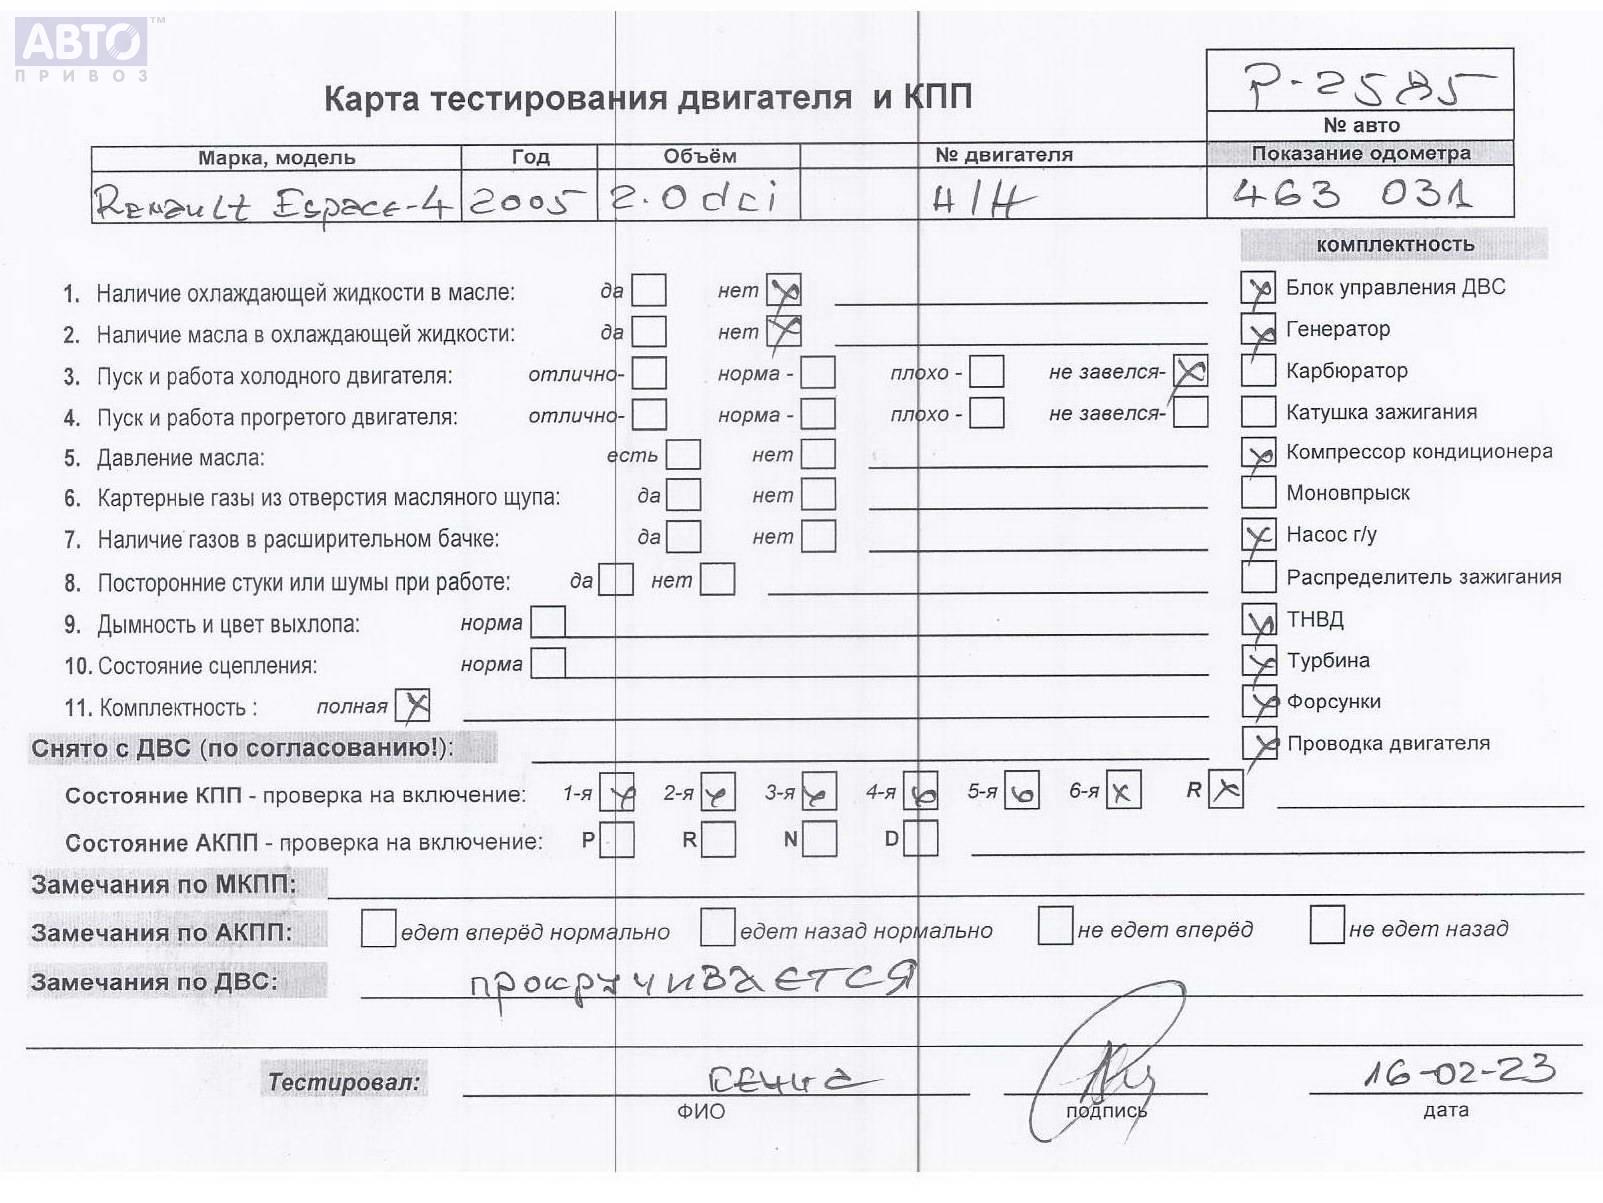 АВТО™
ПРИВОЗ
Карта тестирования двигателя и КПП
P-2585
№ авто
Марка, модель Год Объём № двигателя Показание одометра
Renault Espace-4 2005 2.0 dci 463 031
комплектность
1. Наличие охлаждающей жидкости в масле: да нет
Блок управления ДВС
2. Наличие масла в охлаждающей жидкости: да нет
Генератор
3. Пуск и работа холодного двигателя: отлично- норма - плохо - не завелся-
Карбюратор
4. Пуск и работа прогретого двигателя: отлично- норма - плохо - не завелся-
Катушка зажигания
5. Давление масла: есть нет
Компрессор кондиционера
6. Картерные газы из отверстия масляного щупа: да нет
Моновпрыск
7. Наличие газов в расширительном бачке: да нет
Насос г/у
8. Посторонние стуки или шумы при работе: да нет
Распределитель зажигания
9. Дымность и цвет выхлопа: норма
ТНВД
10. Состояние сцепления: норма
Турбина
11. Комплектность : полная
Форсунки
Снято с ДВС (по согласованию!):
Проводка двигателя
Состояние КПП - проверка на включение: 1-я 2-я 3-я 4-я 5-я 6-я R
Состояние АКПП - проверка на включение: P R N D
Замечания по МКПП:
Замечания по АКПП: едет вперёд нормально едет назад нормально не едет вперёд не едет назад
Замечания по ДВС: прокручивается
Тестировал: 16-02-23
ФИО подпись дата